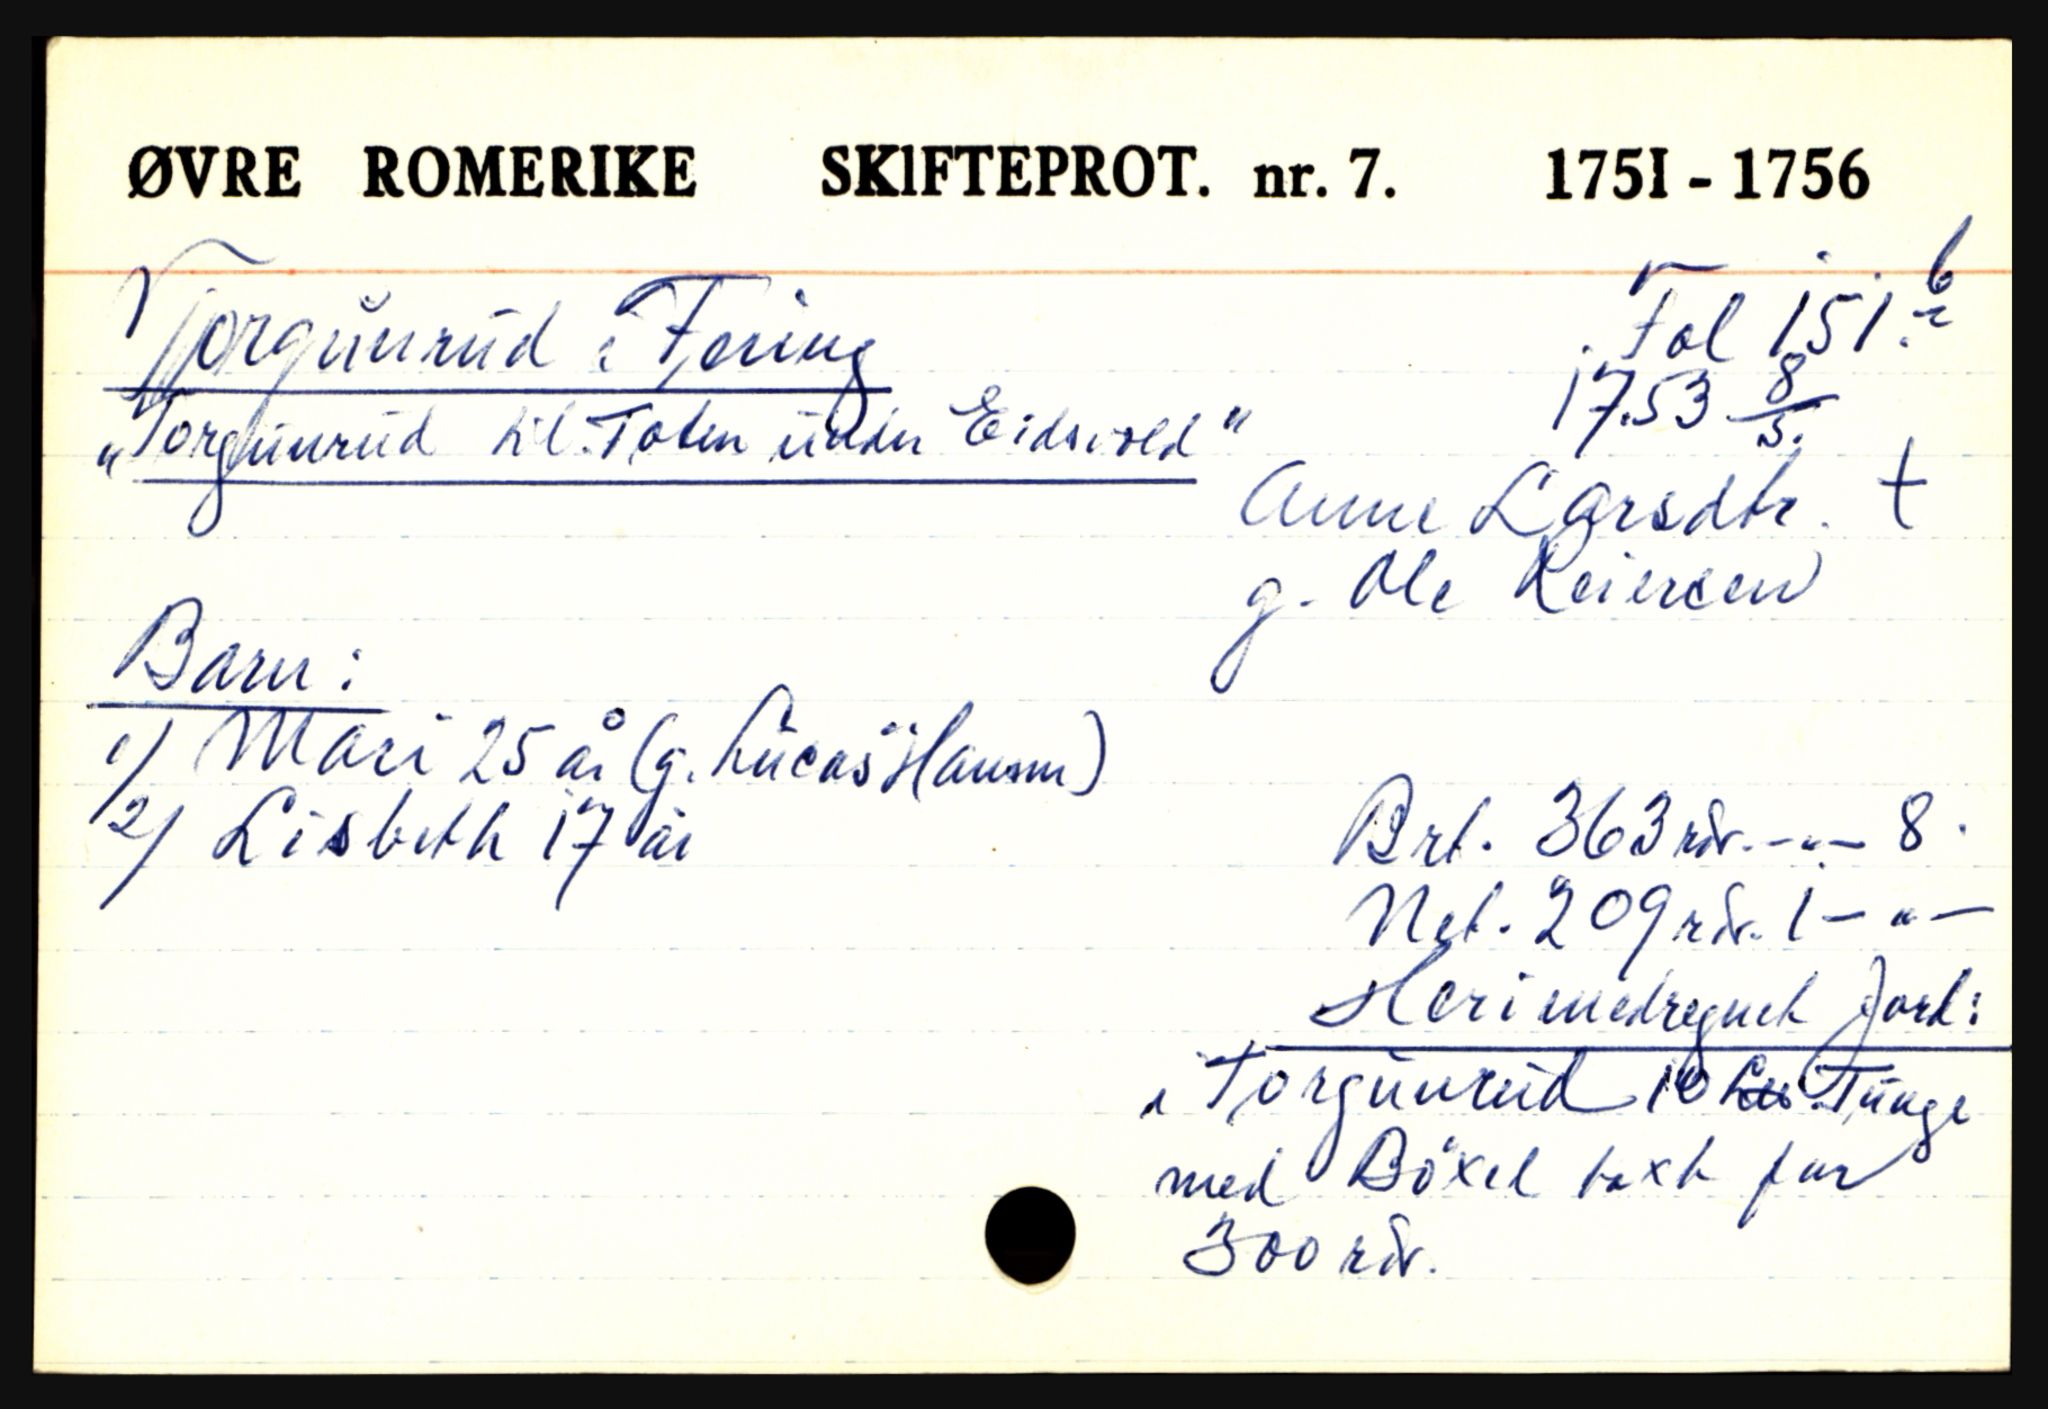 ØVRE ROMERIKE SKIFTEPROT. nr. 7. 175I - 1756
Torgunrud i Fering
Fol 151.b
1753 8/5.
"Torgunrud til Toten under Eidsvold"
Anne Larsdtr. †
g. Ole Reiersen
Barn:
1) Mari 25 år (g. Lucas Hansen)
2) Lisbeth 17 år
Brt. 363 rdr. - " - 8.
Net. 209 rdr. 1 - " -
Heri medregnet Jord:
i Torgunrud 10 Tunge
med Böxel taxt for
300 rdr.